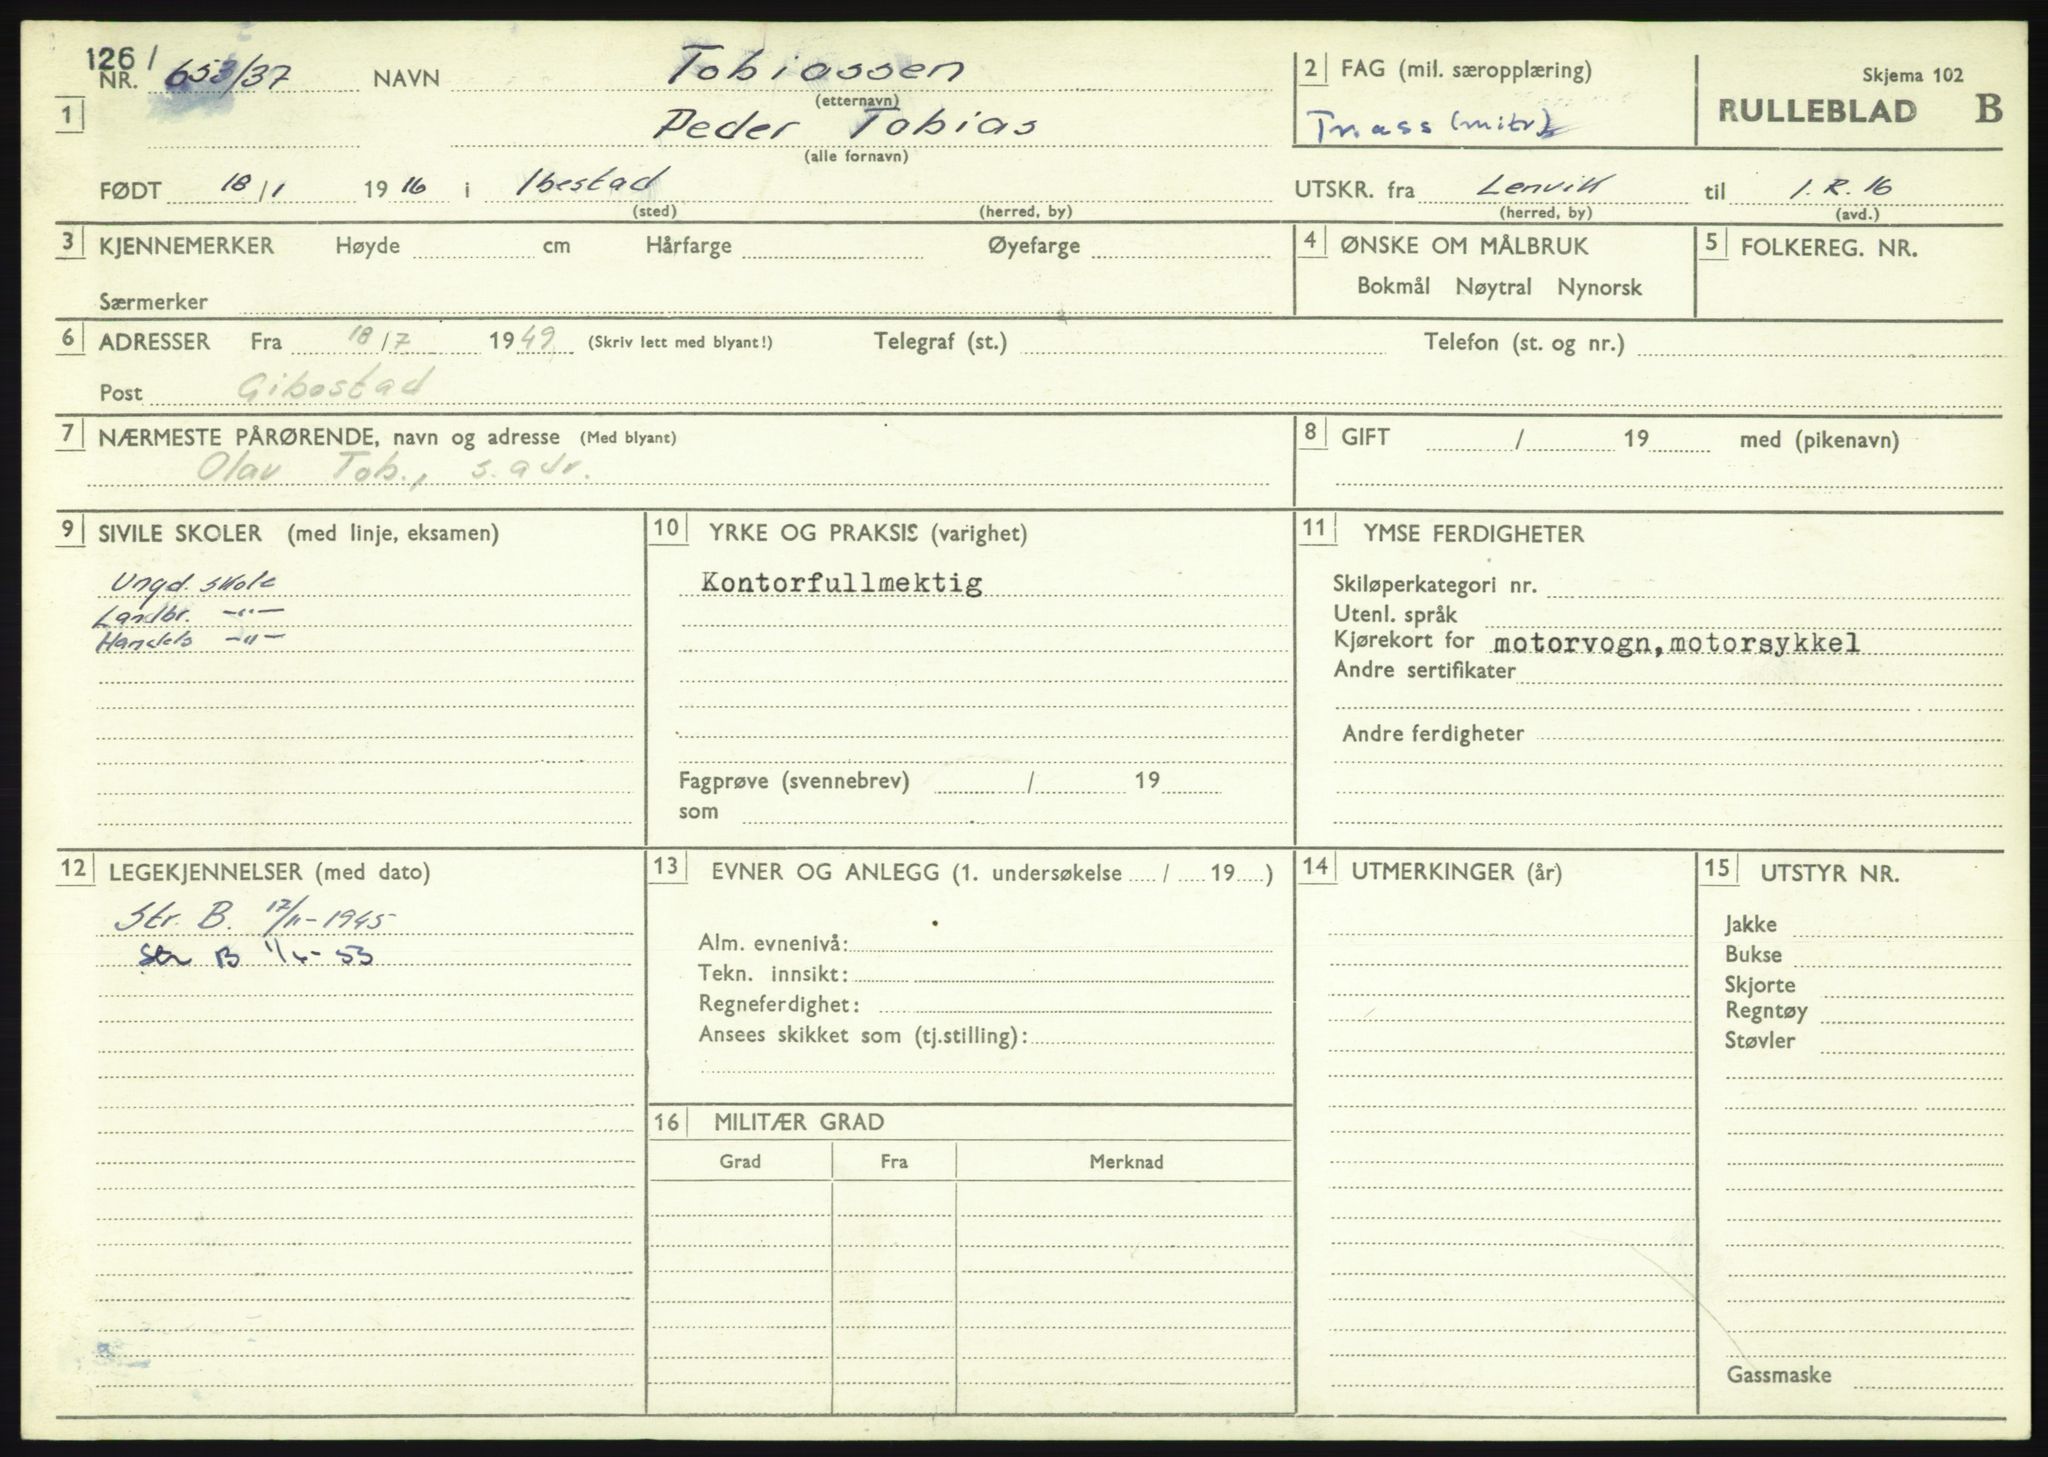 126/
NR. 653/37 NAVN Tobiassen
(etternavn)
1
Peder Tobias
(alle fornavn)
2 FAG (mil. særopplæring)
(mitr)
Skjema 102
RULLEBLAD B
FØDT 18/1 1916 i Ibestad
(sted) (herred, by)
UTSKR. fra Lenvik til I.R. 16
(herred, by) (avd.)
3 KJENNEMERKER Høyde cm Hårfarge Øyefarge
Særmerker
4 ØNSKE OM MÅLBRUK
Bokmål Nøytral Nynorsk
5 FOLKEREG. NR.
6 ADRESSER Fra 18/7 1949 (Skriv lett med blyant!) Telegraf (st.) Telefon (st. og nr.)
Post Gibostad
7 NÆRMESTE PÅRØRENDE, navn og adresse (Med blyant)
Olav Tob., s. adr.
8 GIFT / 19 med (pikenavn)
9 SIVILE SKOLER (med linje, eksamen)
Ungd. skole
Landbr. -"-
Handels -"-
10 YRKE OG PRAKSIS (varighet)
Kontorfullmektig
Fagprøve (svennebrev) / 19
som
11 YMSE FERDIGHETER
Skiløperkategori nr.
Utenl. språk
Kjørekort for motorvogn, motorsykkel
Andre sertifikater
Andre ferdigheter
12 LEGEKJENNELSER (med dato)
Str. B. 17/11-1945
Str B 53
13 EVNER OG ANLEGG (1. undersøkelse / 19 )
Alm. evnenivå:
Tekn. innsikt:
Regneferdighet:
Ansees skikket som (tj.stilling):
14 UTMERKINGER (år)
15 UTSTYR NR.
Jakke
Bukse
Skjorte
Regntøy
Støvler
Gassmaske
16 MILITÆR GRAD
Grad Fra Merknad